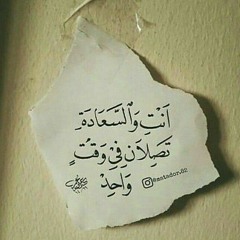 أَنْتِ وَالسَّعَادَةِ
تَصِلَانِ فِي وَقْتٍ
وَاحِدْ